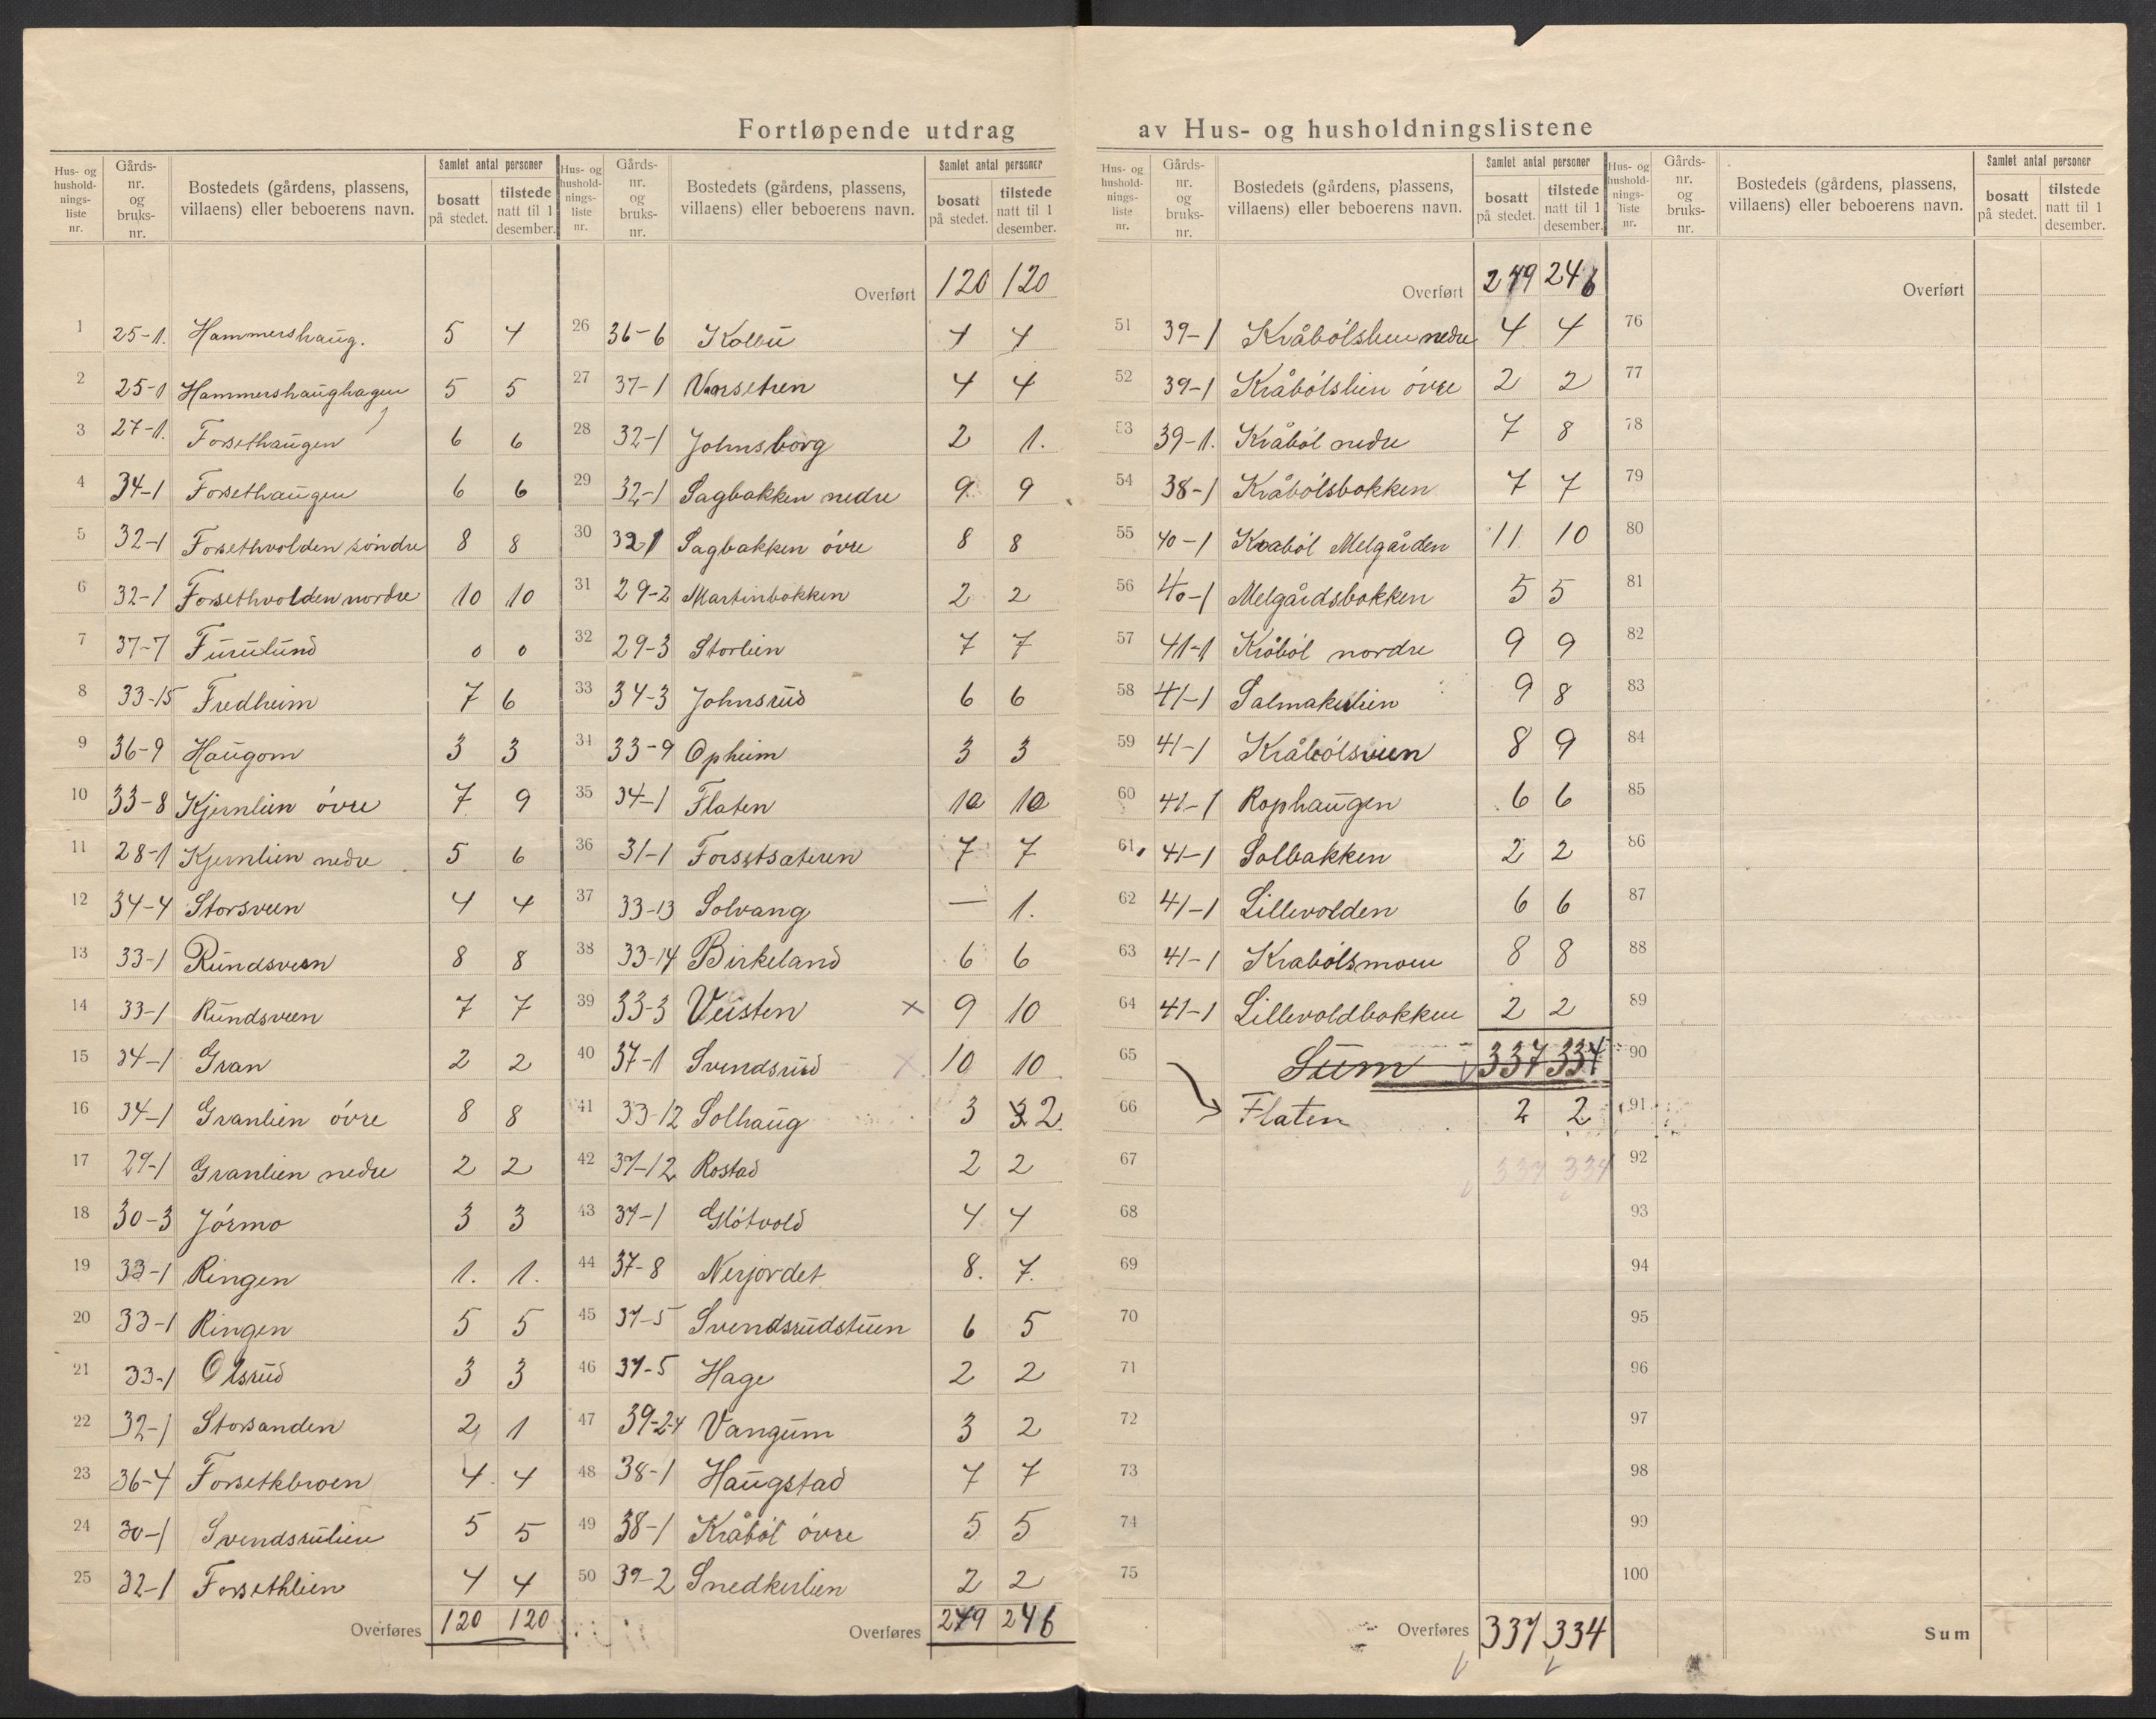 Fortløpende utdrag av Hus- og husholdningslistene
Hus- og hushold-nings-liste nr. Gårds-nr. og bruks-nr. Bostedets (gårdens, plassens, villaens) eller beboerens navn. Samlet antal personer bosatt på stedet. tilstede natt til 1 desember.
1 25-1. Hammershaug. 5 4
2 25-1 Hammershaughagen 5 5
3 27-1. Forsethaugen 6 6
4 34-1 Forsethaugen 6 6
5 32-1 Forsethvolden søndre 8 8
6 32-1 Forsethvolden nordre 10 10
7 37-7 Furulund 0 0
8 33-15 Fredheim 7 6
9 36-9 Haugom 3 3
10 33-8 Kjernlien övre 7 9
11 28-1 Kjernlien nedre 5 6
12 34-4 Storsveen 4 4
13 33-1 Rundsveen 8 8
14 33-1 Rundsveen 7 7
15 34-1 Gran 2 2
16 34-1 Granlien övre 8 8
17 29-1 Granlien nedre 2 2
18 30-3 Jórmo 3 3
19 33-1 Ringen 1. 1.
20 33-1 Ringen 5 5
21 33-1 Olsrud 3 3
22 32-1 Storsanden 2 1
23 36-4 Forsetkbroen 4 4
24 30-1 Svendsrulien 5 5
25 32-1 Forsethlien 4 4
Overføres 120 120
Hus- og hushold-nings-liste nr. Gårds-nr. og bruks-nr. Bostedets (gårdens, plassens, villaens) eller beboerens navn. Samlet antal personer bosatt på stedet. tilstede natt til 1 desember.
Overført 120 120
26 36-6 Kolbu 4 4
27 37-1 Vorsetren 4 4
28 32-1 Johnsborg 2 1.
29 32-1 Sagbakken nedre 9 9
30 32 1 Sagbakken övre 8 8
31 29-2 Martinbakken 2 2
32 29-3 Storlien 7 7
33 34-3 Johnsrud 6 6
34 33-9 Opheim 3 3
35 34-1 Flaten 10 10
36 31-1 Forsetsæteren 7 7
37 33-13 Solvang — 1.
38 33-14 Birkeland 6 6
39 33-3 Veisten × 9 10
40 37-1 Svendsrud × 10 10
41 33-12 Solhaug 3 3 2
42 37-12 Rostad 2 2
43 37-1 Glótvold 4 4
44 37-8 Nerjordet 8. 7.
45 37-5 Svendsrudstuen 6 5
46 37-5 Hage 2 2
47 39-24 Vangum 3 2
48 38-1 Haugstad 7 7
49 38-1 Kråból óvre 5 5
50 39-2 Snedkerlien 2 2
Overføres 249 246
Hus- og hushold-nings-liste nr. Gårds-nr. og bruks-nr. Bostedets (gårdens, plassens, villaens) eller beboerens navn. Samlet antal personer bosatt på stedet. tilstede natt til 1 desember.
Overført 249 246
51 39-1 Kråbólslien nedre 4 4
52 39-1 Kråbólslien óvre 2 2
53 39-1. Kråból nedre 7 8
54 38-1 Kråbólsbakken 7 7
55 40-1 Kraból Melgården 11 10
56 40-1 Melgårdsbakken 5 5
57 41-1 Kråból nordre 9 9
58 41-1 Salmakerlien 9 8
59 41-1 Kråbólsveen 8 9
60 41-1 Rophaugen 6 6
61 41-1 Solbakken 2 2
62 41-1 Lillevolden 6 6
63 41-1 Krabólsmoen 8 8
64 41-1 Lillevoldbakken 2 2
65 Sum 337 334
66 Flaten 2 2
67 337 334
68
69
70
71
72
73
74
75
Overføres 337 334
Hus- og hushold-nings-liste nr. Gårds-nr. og bruks-nr. Bostedets (gårdens, plassens, villaens) eller beboerens navn. Samlet antal personer bosatt på stedet. tilstede natt til 1 desember.
Overført
76
77
78
79
80
81
82
83
84
85
86
87
88
89
90
91
92
93
94
95
96
97
98
99
100
Sum